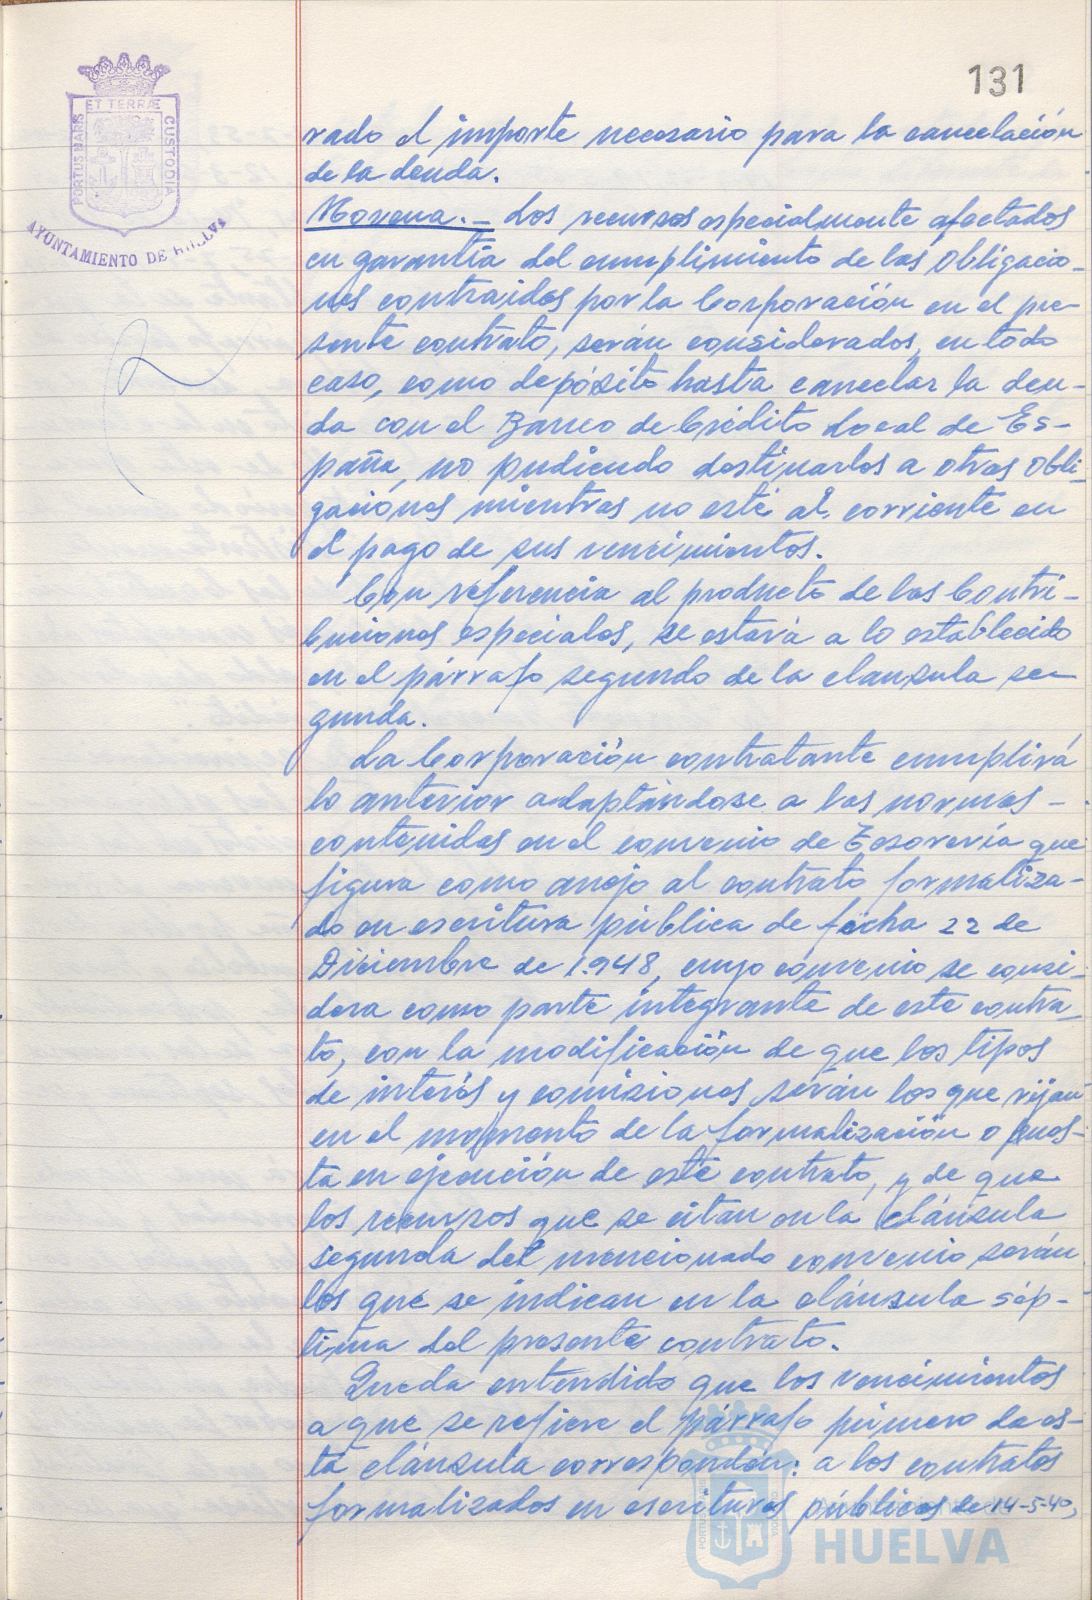 131
ET TERRÆ
PORTUS MARIS
CUSTODIA
AYUNTAMIENTO DE HUELVA
rado el importe necesario para la cancelación
de la deuda.
Novena.- Los recursos especialmente afectados
en garantía del cumplimiento de las obligacio-
nes contraidas por la Corporación en el pre-
sente contrato, serán considerados, en todo
caso, como depósito hasta cancelar la deu-
da con el Banco de Crédito Local de Es-
paña, no pudiendo destinarlos a otras obli-
gaciones mientras no esté al corriente en
el pago de sus vencimientos.
Con referencia al producto de las Contri-
buciones especiales, se estará a lo establecido
en el párrafo segundo de la clausula se-
gunda.
La Corporación contratante cumplirá
lo anterior adaptándose a las normas-
contenidas en el convenio de Tesorería que
figura como anejo al contrato formaliza-
do en escritura pública de fecha 22 de
Diciembre de 1.948, cuyo convenio se consi-
dera como parte integrante de este contra-
to, con la modificación de que los tipos
de interés y comisiones serán los que rijan
en el momento de la formalización o pues-
ta en ejecución de este contrato, y de que
los recursos que se citan en la cláusula
segunda del mencionado convenio serán
los que se indican en la cláusula sép-
tima del presente contrato.
Queda entendido que los vencimientos
a que se refiere el párrafo primero de es-
ta cláusula corresponden: a los contratos
formalizados en escrituras públicas de 14-5-40,
HUELVA